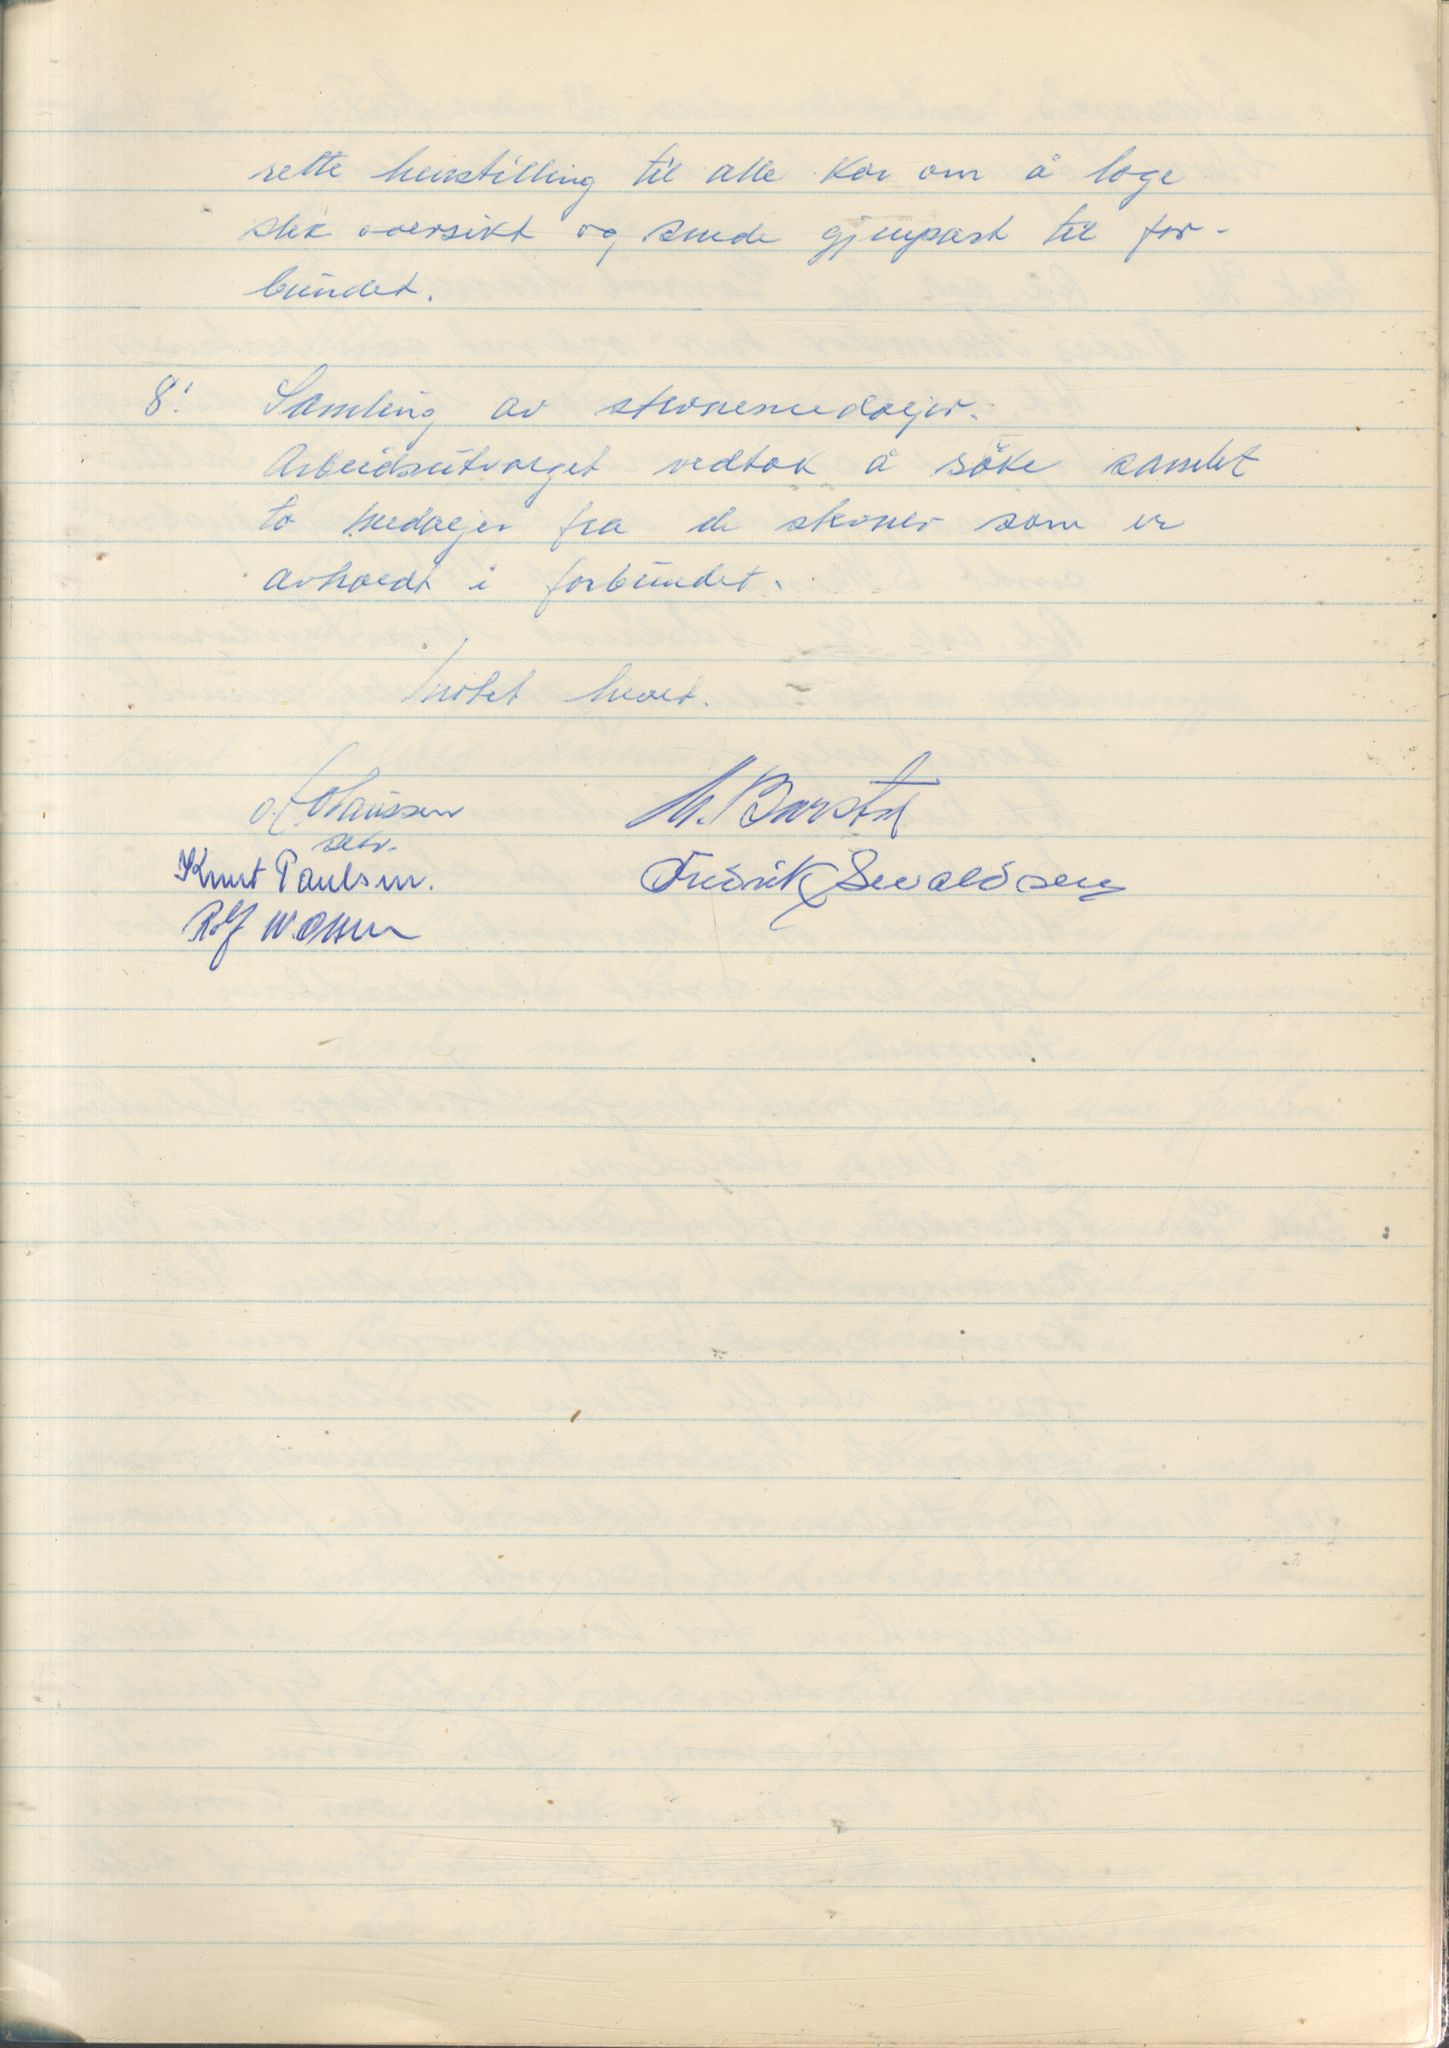 rette henstilling til alle kor om å lage
slik oversikt og sende gjenpart til for-
bundet.
8. Samling av stevnemedaljer.
Arbeidsutvalget vedtok å söke samlet
to medaljer fra de stevner som er
avholdt i forbundet.
Mötet hevet.
Johanssen
sekr.
Knut Paulsen.
Rolf W. Olsen
Fredrik Sewaldsen